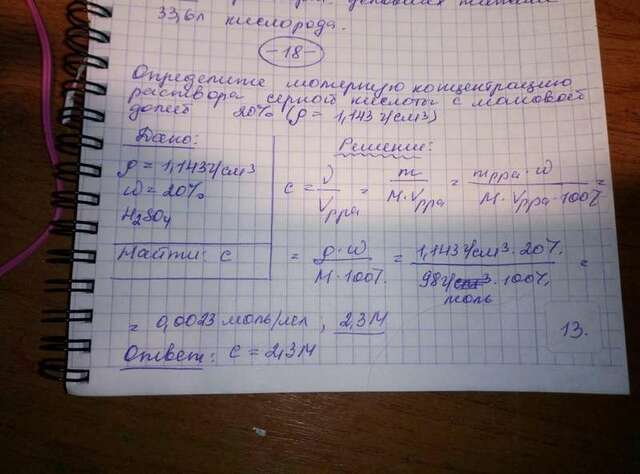 33,6л кислорода.
-18-
Определите молярную концентрацию
раствора серной кислоты с массовой
долей 20% (ρ = 1,143 г/см³)
Дано:
ρ = 1,143 г/см³
ω = 20%
H₂SO₄
Найти: c
Решение:
c = ν / Vрра = m / M · Vрра = mрра · ω / M · Vрра · 100% =
= ρ · ω / M · 100% = 1,143 г/см³ · 20% / 98 г/моль · 100% =
= 0,0023 моль/мл ; 2,3 М
Ответ: c = 2,3 М
13.